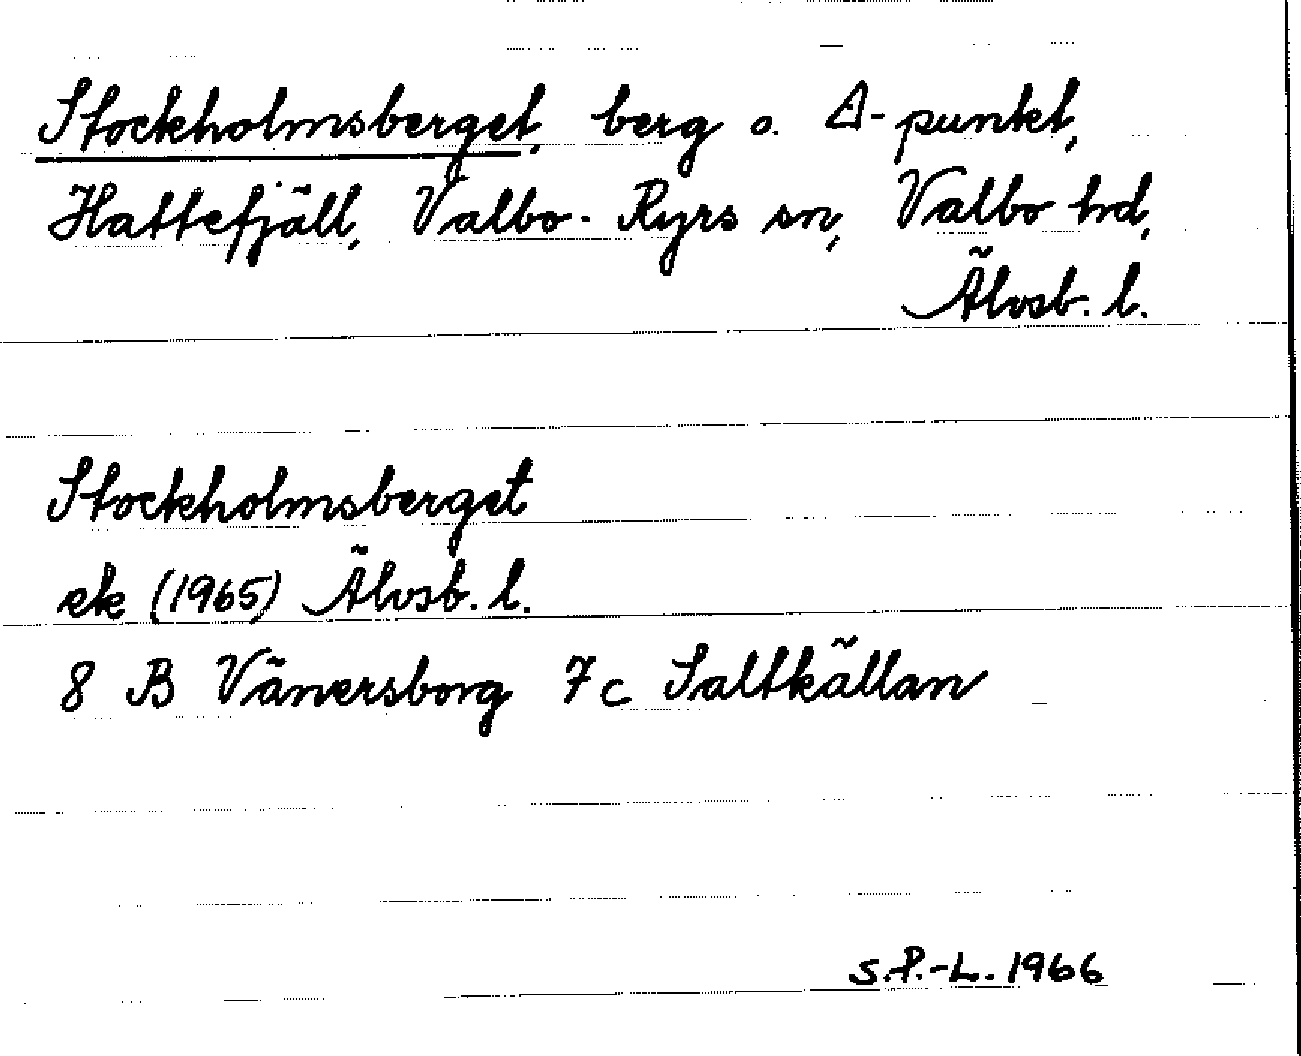 Stockholmsberget, berg o. Δ-punkt,
Hattefjäll, Valbo-Ryrs sn, Valbo hd,
Älvsb. l.
Stockholmsberget
ek (1965) Älvsb. l.
8 B Vänersborg 7c Saltkällan
S.P.-L. 1966